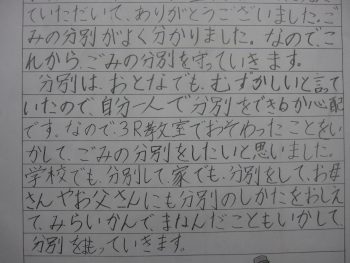 ていただいて、ありがとうございました。ご
みの分別がよく分かりました。なのでこ
れから、ごみの分別を守っていきます。
分別は、おとなでも、むずかしいと言って
いたので、自分一人で分別をできるか心配
です。なので、3R教室でおそわったことをい
かして、ごみの分別をしたいと思いました。
学校でも、分別して、家でも、分別をして、お母
さんやお父さんにも分別のしかたをおしえ
て、みらいかんで、まなんだこともいかして
分別を
っていきます。